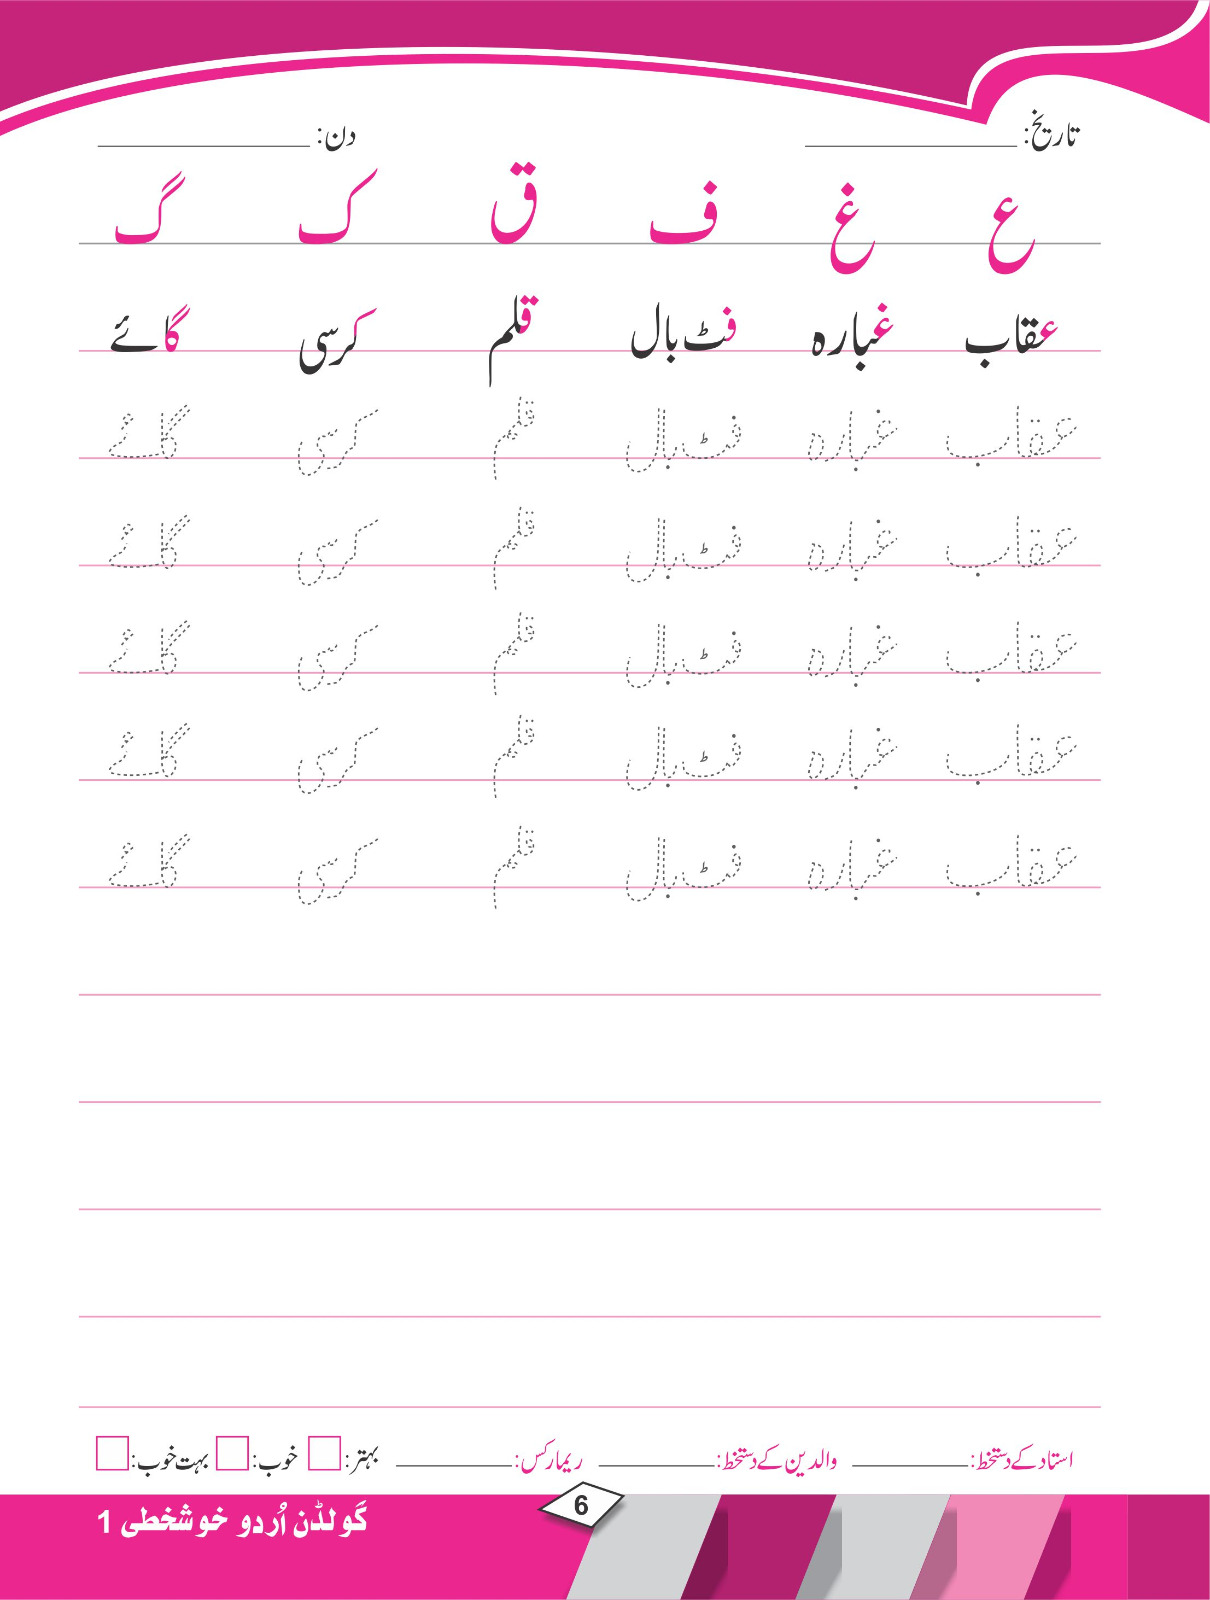 تاریخ: دن:
ع غ ف ق ک گ
عقاب غبارہ فٹ بال قلم کرسی گائے
عقاب غبارہ فٹ بال قلم کرسی گائے
عقاب غبارہ فٹ بال قلم کرسی گائے
عقاب غبارہ فٹ بال قلم کرسی گائے
عقاب غبارہ فٹ بال قلم کرسی گائے
عقاب غبارہ فٹ بال قلم کرسی گائے
استاد کے دستخط: والدین کے دستخط: ریمارکس: بہتر: خوب: بہت خوب:
6
گولڈن اُردو خوشخطی 1